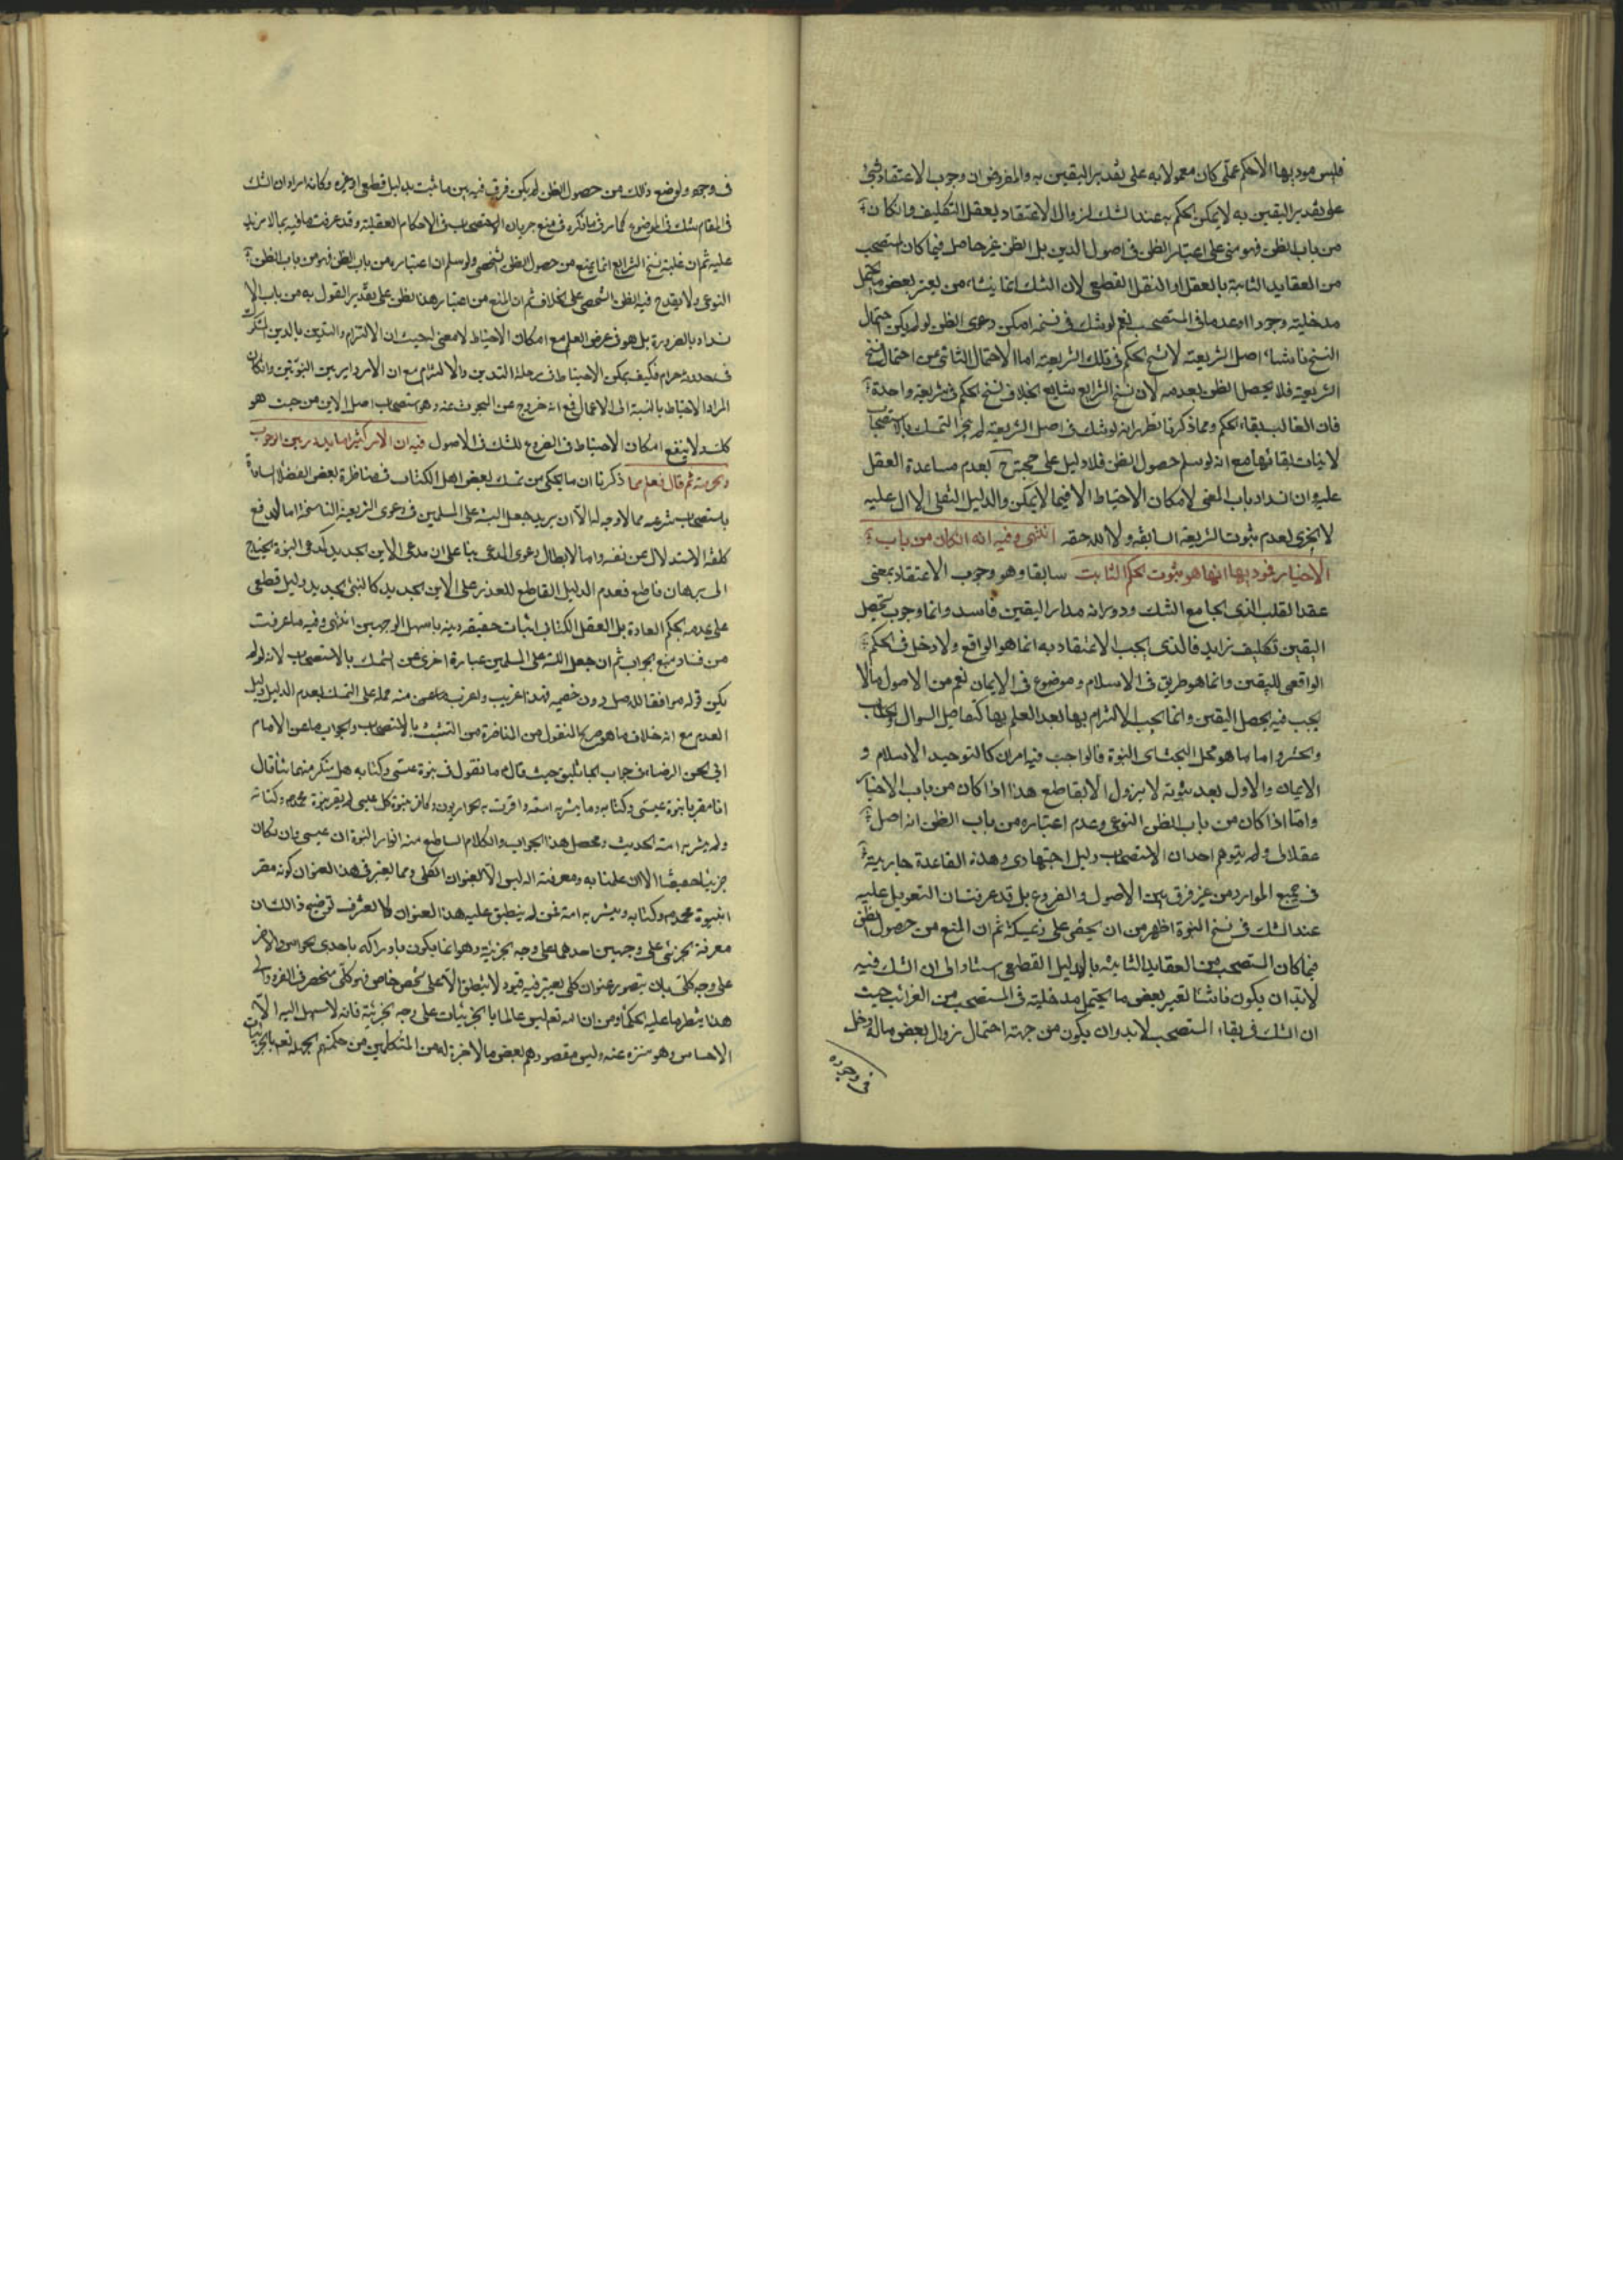 فليس مودیها الا حکم عملی کان معمولا به علی تقدیر الیقین به والمفروض ان وجوب الاعتقاد بشئ
علی تقدیر الیقین به لا یمکن الحکم به عند الشک لزوال الاعتقاد بعقل التکلیف وانکان
من باب الظن فهو مبنی علی اعتبار الظن فی اصول الدین بل الظن غیر حاصل فیما کان المستصحب
من العقاید الثابتة بالعقل او النقل القطعی لان الشک انما ینشاء من تغیر بعض ما یحتمل
مدخلیته وجودا او عدما فی المستصحب نعم لو شک فی نسخه امکن دعوی الظن لو لم یکن احتمال
النسخ ناشئا من احتمال نسخ اصل الشریعة لا نسخ الحکم فی تلک الشریعة اما الاحتمال الناشی عن احتمال نسخ
الشریعة فلا یحصل الظن بعدمه لان نسخ الشرایع شایع بخلاف نسخ الحکم فی شریعة واحدة
فان الغالب بقاء الحکم ومما ذکرنا یظهر انه لو شک فی اصل الشریعة لم یجز التمسک بالاستصحاب
لاثبات بقائها مع انه لو سلم حصول الظن فلا دلیل علی حجیته ح لعدم مساعدة العقل
علیه وان انسد باب العلم لامکان الاحتیاط الا فیما لا یمکن والدلیل النقلی الدال علیه
لا یجزی لعدم ثبوت الشریعة السابقة ولا اللاحقة انتهی وفیه انه ان کان من باب
الاخبار فمودیها انها هو ثبوت الحکم الثابت سابقا وهو وجوب الاعتقاد بمعنی
عقد القلب الذی یجامع الشک ودورانه مدار الیقین فاسد وانما وجوب تحصیل
الیقین تکلیف زاید فالذی یجب الاعتقاد به انما هو الواقع ولا دخل فی الحکم
الواقعی للیقین وانما هو طریق فی الاسلام وموضوع فی الایمان نعم من الاصول ما لا
یجب فیه تحصیل الیقین وانما یجب الالتزام بها بعد العلم بها کتفاصیل السوال والحساب
والحشر واما ما هو محل البحث ای النبوة فالواجب فیها امران کالتوحید الاسلام و
الایمان والاول بعد ثبوته لا یزول الا بقاطع هذا اذا کان من باب الاخبار
وامّا اذا کان من باب الظن النوعی وعدم اعتباره من باب الظن انه اصل
عقلائی ولم یتوهم احد ان الاستصحاب دلیل اجتهادی وهذه القاعدة جاریة
فی جمیع الموارد من غیر فرق بین الاصول والفروع بل قد عرفت ان التعویل علیه
عند الشک فی نسخ النبوة اظهر من ان یخفی علی ذی مسکة ثم ان المنع من حصول الظن
فیما کان المستصحب من العقاید الثابتة بالدلیل القطعی استنادا الی ان الشک فیه
لابد ان یکون ناشئا لتغیر بعض ما یحتمل مدخلیته فی المستصحب من الغرائب حیث
ان الشک فی بقاء المستصحب لابد وان یکون من جهة احتمال زوال بعض ماله دخل
فی وجوده
فی وجوده ولوضع ذلک من حصول الظن لم یکن فرق فیه بین ما ثبت بدلیل قطعی او غیره وکانه اراد ان الشک
فی المقام شک فی الموضوع کما مر فی ما ذکره فی منع جریان الاستصحاب فی الاحکام العقلیة وقد عرفت ما فیه بما لا مزید
علیه ثم ان غلبة نسخ الشرایع انما یمنع من حصول الظن الشخصی ولو سلم ان اعتباره من باب الظن فهو من باب الظن
النوعی ولا یقدح فیه الظن الشخصی علی الخلاف ثم ان المنع من اعتبار هذا الظن علی تقدیر القول به من باب الا
نسداد بالضرورة بل هو فی عرض العلم مع امکان الاحتیاط لا معنی له حیث ان الالتزام والتدین بالدین المشکوک
فی حدوثه حرام فکیف یمکن الاحتیاط فی مرحلة التدین والالتزام مع ان الامر دایر بین النبوتین وانکان
المراد الاحتیاط بالنسبة الی الاعمال فمع انه خروج عن المبحوث عنه وهو استصحاب اصل الدین من حیث هو
کلیة لا ینفع امکان الاحتیاط فی الفروع للشک فی الاصول فیه ان الامر کثیرا ما یدور بین الوجوب
والحرمة ثم قال فعلم مما ذکرنا ان ما یحکی من تمسک بعض اهل الکتاب فی مناظرة بعض الفضلاء السادة
باستصحاب شرعه مما لا وجه له الا ان یرید جعل البینة علی المسلمین فی دعوی الشریعة الناسخة اما لدفع
کلفة الاستدلال عن نفسه واما لابطال دعوی المدعی بناء علی ان مدعی الدین الجدید کمدعی النبوة یحتاج
الی برهان قاطع فعدم الدلیل القاطع للعذر علی الدین الجدید کالنبی الجدید دلیل قطعی
علی عدمه بحکم العادة بل العقل فالکتابی اثبات حقیقه دینه باسهل الوجهین انتهی وفیه ما عرفت
من فساد منع الجواب ثم ان جعل البینة علی المسلمین عبارة اخری عن التمسک بالاستصحاب لانه لو لم
یکن قوله موافقا للاصل دون خصمه فهذا غریب واغرب ما عن منه حمله علی التمسک بعدم الدلیل دلیل
العدم مع انه خلاف ما هو صریح المنقول من المناظرة من التشبث بالاستصحاب والجواب ما عن الامام
ابی الحسن الرضا من جواب الجاثلیق حیث قال ما تقول فی نبوة عیسی وکتابه هل تنکر منهما شیئا قال
انا مقر بنبوة عیسی وکتابه وما بشر به امته واقرت به الحواریون وکافر بنبوة کل عیسی لم یقر بنبوة محمد وکتابه
ولم یبشر به امته الحدیث ومحصل هذا الجواب والکلام الساطع منه انوار النبوة ان عیسی وان کان
جزئیا حقیقیا الا ان علمنا به ومعرفته الیه لیس الا بالعنوان الکلی ومما یعتبر فی هذا العنوان کونه مقر
ا بنبوة محمد وکتابه ومبشر به امته فمن لم ینطبق علیه هذا العنوان فلا نعترف توضیح ذالک ان
معرفة الجزئی علی وجهین احدهما علی وجه الجزئیة وهو انما یکون بادراکه باحدی الحواس والاخر
علی وجه کلّی بان یتصور عنوان کلی یعتبر فیه قیود لا ینطبق الا علی شخص خاص فهو کلّی منحصر فی الفرد والی
هذا ینظر ما علیه الحکماء من ان الله تعالی لیس عالما بالجزئیات علی وجه الجزئیة فانه لا سبیل الیه الا
الاحساس وهو منزه عنه ولیس مقصودهم بعض مالا خبرة له من المتکلمین من حکمتهم الجهله تعالی بالجزئیات